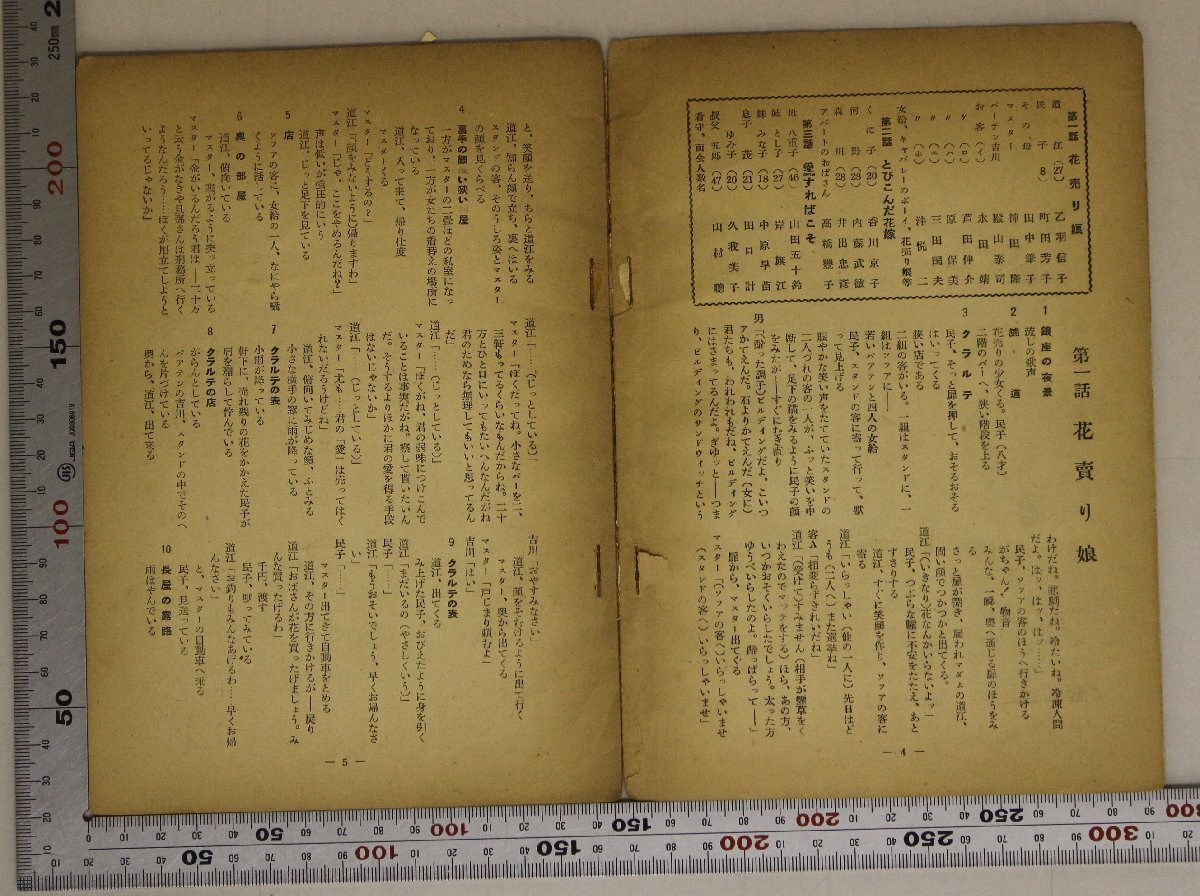 第一話 花売り娘
道江(27) 乙羽信子
民子(8) 町田芳子
その母 田中筆子
マスター 神田隆
バーテン吉川 殿山泰司
お客(イ) 永田靖
〃(ロ) 芦田伸介
〃(ハ) 原保美
〃(ニ) 三田国夫
〃(ホ) 沖悦二
女給、キャバレーのボーイ、花売り娘等
第二話 とびこんだ花嫁
くに子(20) 香川京子
何野(28) 内藤武敏
森川(28) 井出忠彦
アパートのおばさん 高橋豊子
第三話 愛すればこそ
母 八重子(56) 山田五十鈴
姉 とし子(27) 岸旗江
妹 みな子(18) 中原早苗
息子 茂(21) 田口計
ゆみ子(20) 久我美子
叔父 五郎(47) 山村聰
看守、面会人数名
第一話 花売り娘
1 銀座の夜景
流しの歌声
2 舗道
花売りの少女くる。民子(八才)
二階のバーへ、狭い階段を上る
3 クラルテ
民子、そっと扉を押して、おそるおそる
はいってくる
狭い店である
二組の客がいる。一組はスタンドに、一
組はソファに――
若いバアテンと四人の女給
民子、スタンドの客に寄って行って、黙
って見上げる
賑やかな笑い声をたてていたスタンドの
二人づれの客の一人が、ふっと笑いを中
断して、足下の猫をみるように民子の顔
をみたが――すぐにむき直り
男「(酔った調子)ビルディングだよ、こいつ
アかてえんだ。石よりかてえんだ(女に)
君たちも、われわれもだね、ビルディング
にはさまってるんだよ。ぎゆッと――つま
り、ビルディングのサンドウイッチという
わけだね。悲劇だね。冷たいね。冷凍人間
だよ。はッ、はッ、はッ……」
民子、ソファの客のほうへ行きかける
がちゃん!と物音
みんな、一瞬、奥へ通じる扉のほうをみ
る
さっと扉が開き、雇われマダムの道江、
固い顔でつかつかと出てくる。
道江「(いきなり)花なんかいらないよッ」
民子、つぶらな瞳に不安をたたえ、あと
ずさりする
道江、すぐに笑顔を作り、ソファの客に
寄る
道江「いらっしゃい(他の一人に)先日はど
うも(二人へ)また選挙ね」
客A「相変らずきれいだね」
道江「(受けて)すみません(相手が煙草をく
わえたのでマッチをする)ほら、あの方、
いつかおそくいらしたでしょう。太った方
ゆうべいらしたのよ。酔っぱらって――」
扉から、マスター出てくる
マスター「(ソファの客へ)いらっしゃいませ
(スタンドの客へ)いらっしゃいませ」
― 4 ―
と、笑顔を送り、ちらと道江をみる
道江、知らん顔で立ち、裏へはいる
スタンドの客、そのうしろ姿とマスター
の顔を見くらべる
4 裏手の細長い狭い部屋
一方がマスターの二畳ほどの私室になっ
ており、一方が女たちの着替えの場所に
なっている
道江、入って来て、帰り仕度
マスターくる
マスター「どうするの?」
道江「顔をみないように帰りますわ」
マスター「じゃ、ここをやめるんだね?」
声は低いが強圧的にいう
道江、じっと足下を見ている
5 店
ソファの客に、女給の一人、なにやら囁
くように話している
6 奥の部屋
道江、俯向いている
マスター、塞がるように突っ立っている
マスター「金がいるんだろう君は――二十万
と云う金がなきや旦那さんは刑務所へ行く
ようなんだろう……ぼくが用立てしようと
いってるじゃないか」
道江「……(じっとしている)」
マスター「ぼくだってね。小さなバーを二、
三軒もってるくらいなもんだからね。二十
万とひと口にいってもたいへんなんだがね
君のためなら無理してもいいと思ってるん
だ」
道江「……(じっとしている)」
マスター「ぼくがね、君の弱味につけこんで
いることは事実だがね。察して貰いたいん
だ。そうするよりほかに君の愛を得る手段
はないじゃないか」
道江「……(じっとしている)」
マスター「尤も……君の『愛』は売ってはく
れないだろうけどね」
道江、俯向いてみじめな顔、ふとみる
小さな横手の窓に雨が降っている
7 クラルテの表
小雨が降っている
軒下に、売れ残りの花をかかえた民子が
肩を濡らして佇んでいる
8 クラルテの店
がらんとしている
バアテンの吉川、スタンドの中でそのへ
んを片づけている
奥から、道江、出て来る
吉川「おやすみなさい」
道江、顔をそむけるように出て行く
マスター、奥から出てくる
マスター「戸じまり頼むよ」
吉川「はい」
9 クラルテの表
道江、出てくる
み上げた民子、おびえたように身を引く
道江「まだいるの(やさしくいう)」
民子「……」
道江「もうおそいでしょう、早くお帰んなさ
い」
民子「……」
マスター出てきて自動車をとめる
道江、その方に行きかけるが――戻り
道江「おばさんが花を買ったげましょう。み
んな買ったげるわ」
千円、渡す
民子、黙ってみている
道江「お釣りもみんなあげるわ……早くお帰
んなさい」
と、マスターの自動車へ乗る
民子、見送っている
10 長屋の露路
雨はやんでいる
― 5 ―